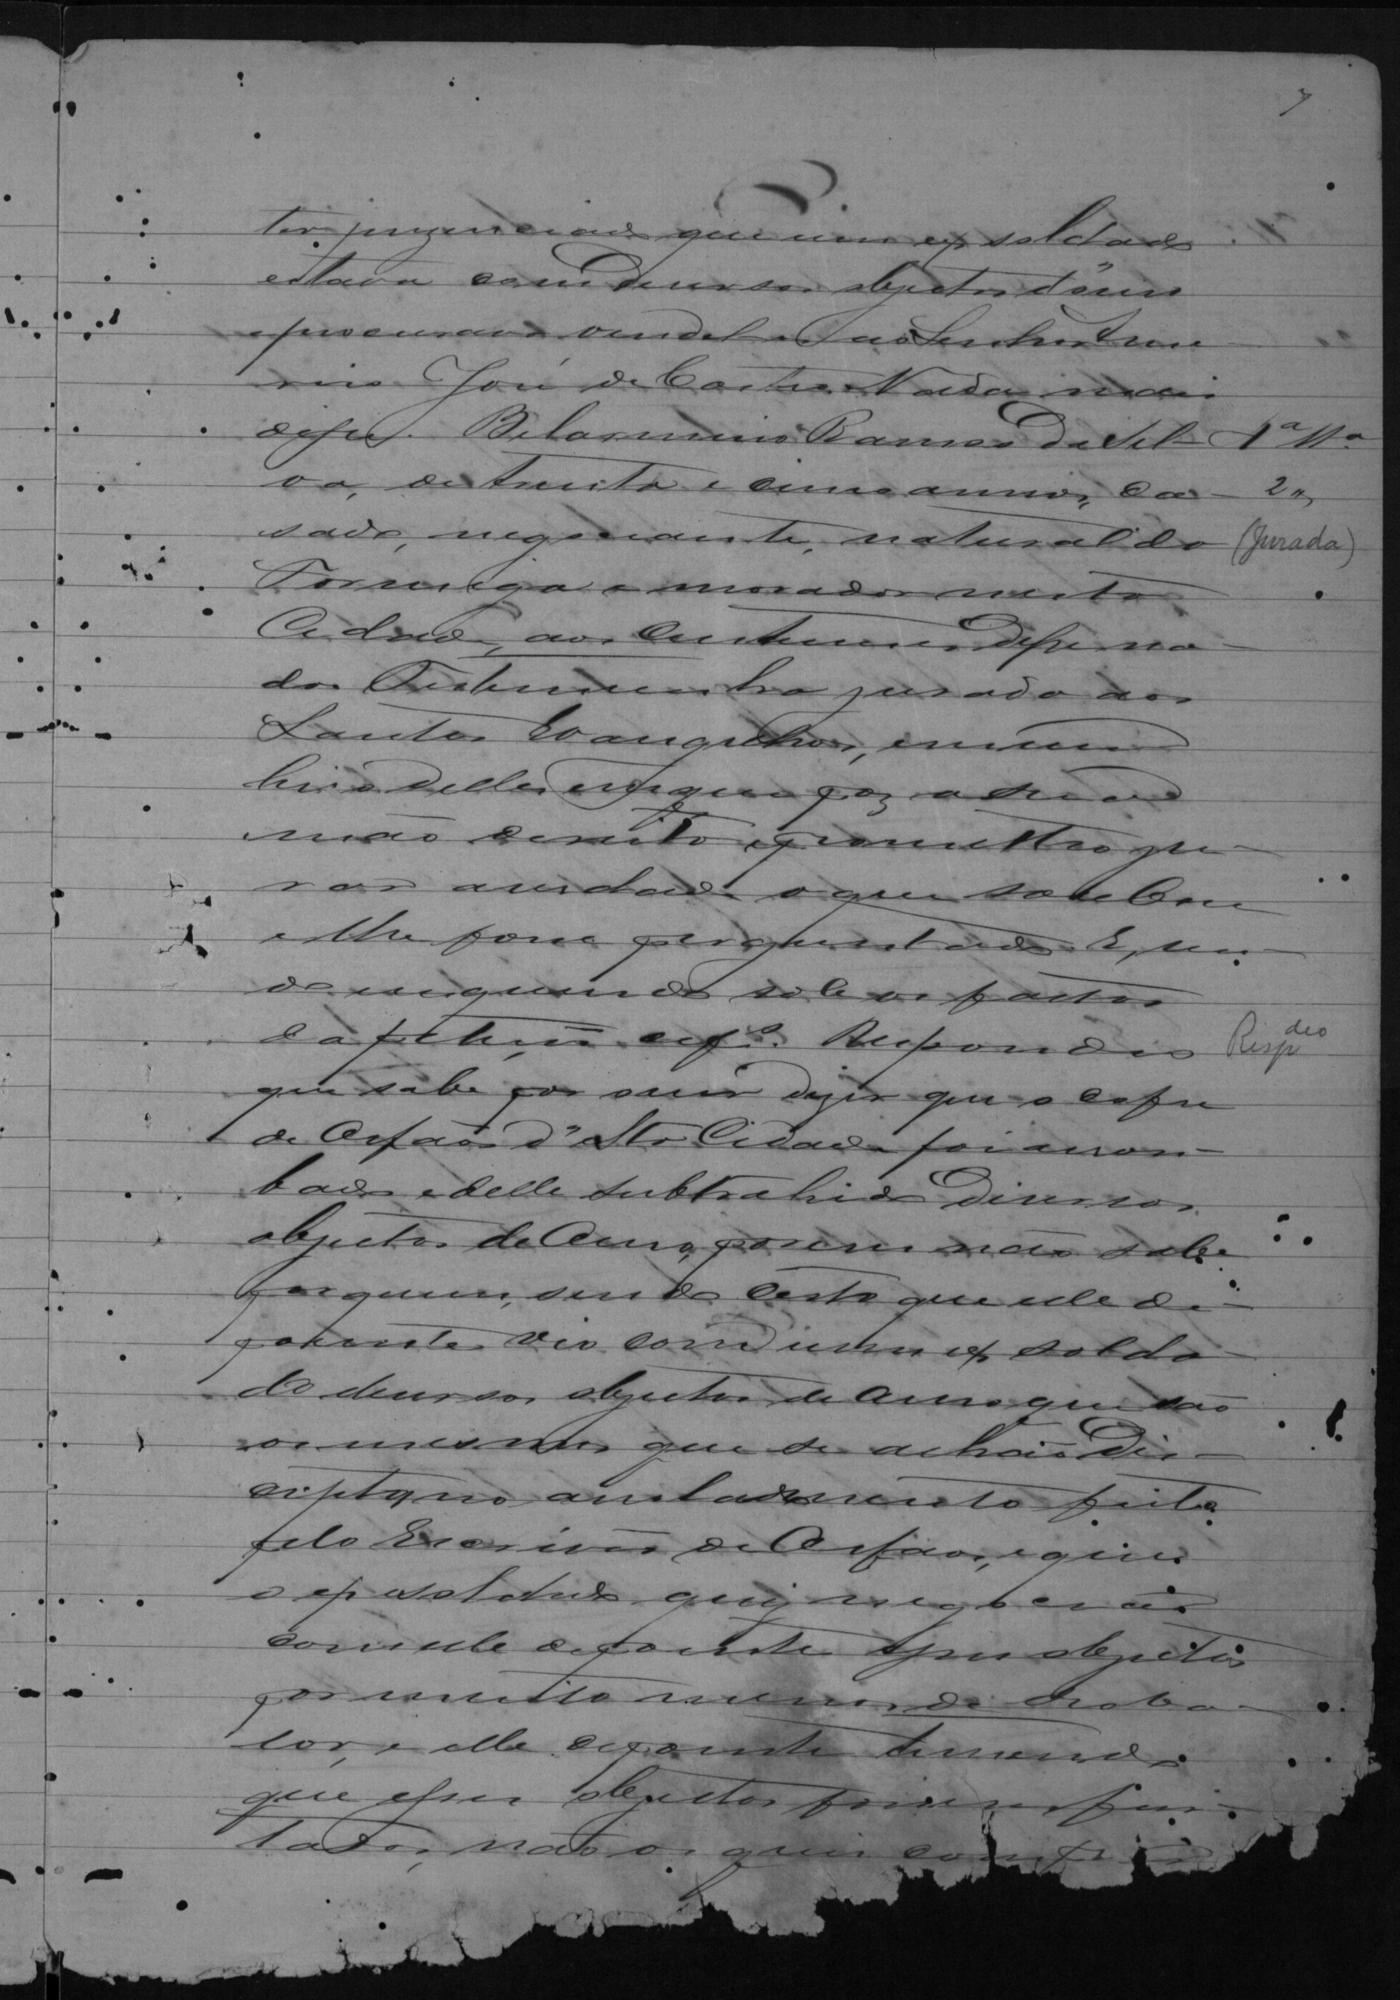 7
ter prezenciado que um ex soldado
estava com diversos objectos d'ouro
e procurava vendel-os ao Senhor Ame
rico José de Castro. Nada mais
disse. Belarmino Ramos da Sil- 1ª Ttª
va, de trinta e cinco annos, ca- 2ª
sado, negociante, natural da (Jurada)
Formiga e morador nesta
Cidade, aos costumes disse na-
da. Testemunha jurada aos
Santos Evangelhos, em um
livro delles em que poz a sua
mão direita e prometteo ju-
rar a verdade o que soubesse
e lhe fosse perguntado. E, sen-
do inquerido sobre os factos
da petição de fs. Respondeo Respdeo
que sabe por ouvir dizer que o cofre
de Orfãos d'esta Cidade foi arrom-
bado e delle subtrahido diversos
objectos de Ouro, porem não sabe
por quem, sendo certo que elle de-
poente vio com um ex solda
do diversos objectos de Ouro que são
os mesmos que se achão dis-
criptos no arrolamento feito
pelo Escrivão de Orfãos, e que
o ex soldado quiz negociar
com elle depoente esses objectos
por muito menos do seo va-
lor, e elle depoente temendo
que esses objectos fossem fur-
tados, não os quis comprar